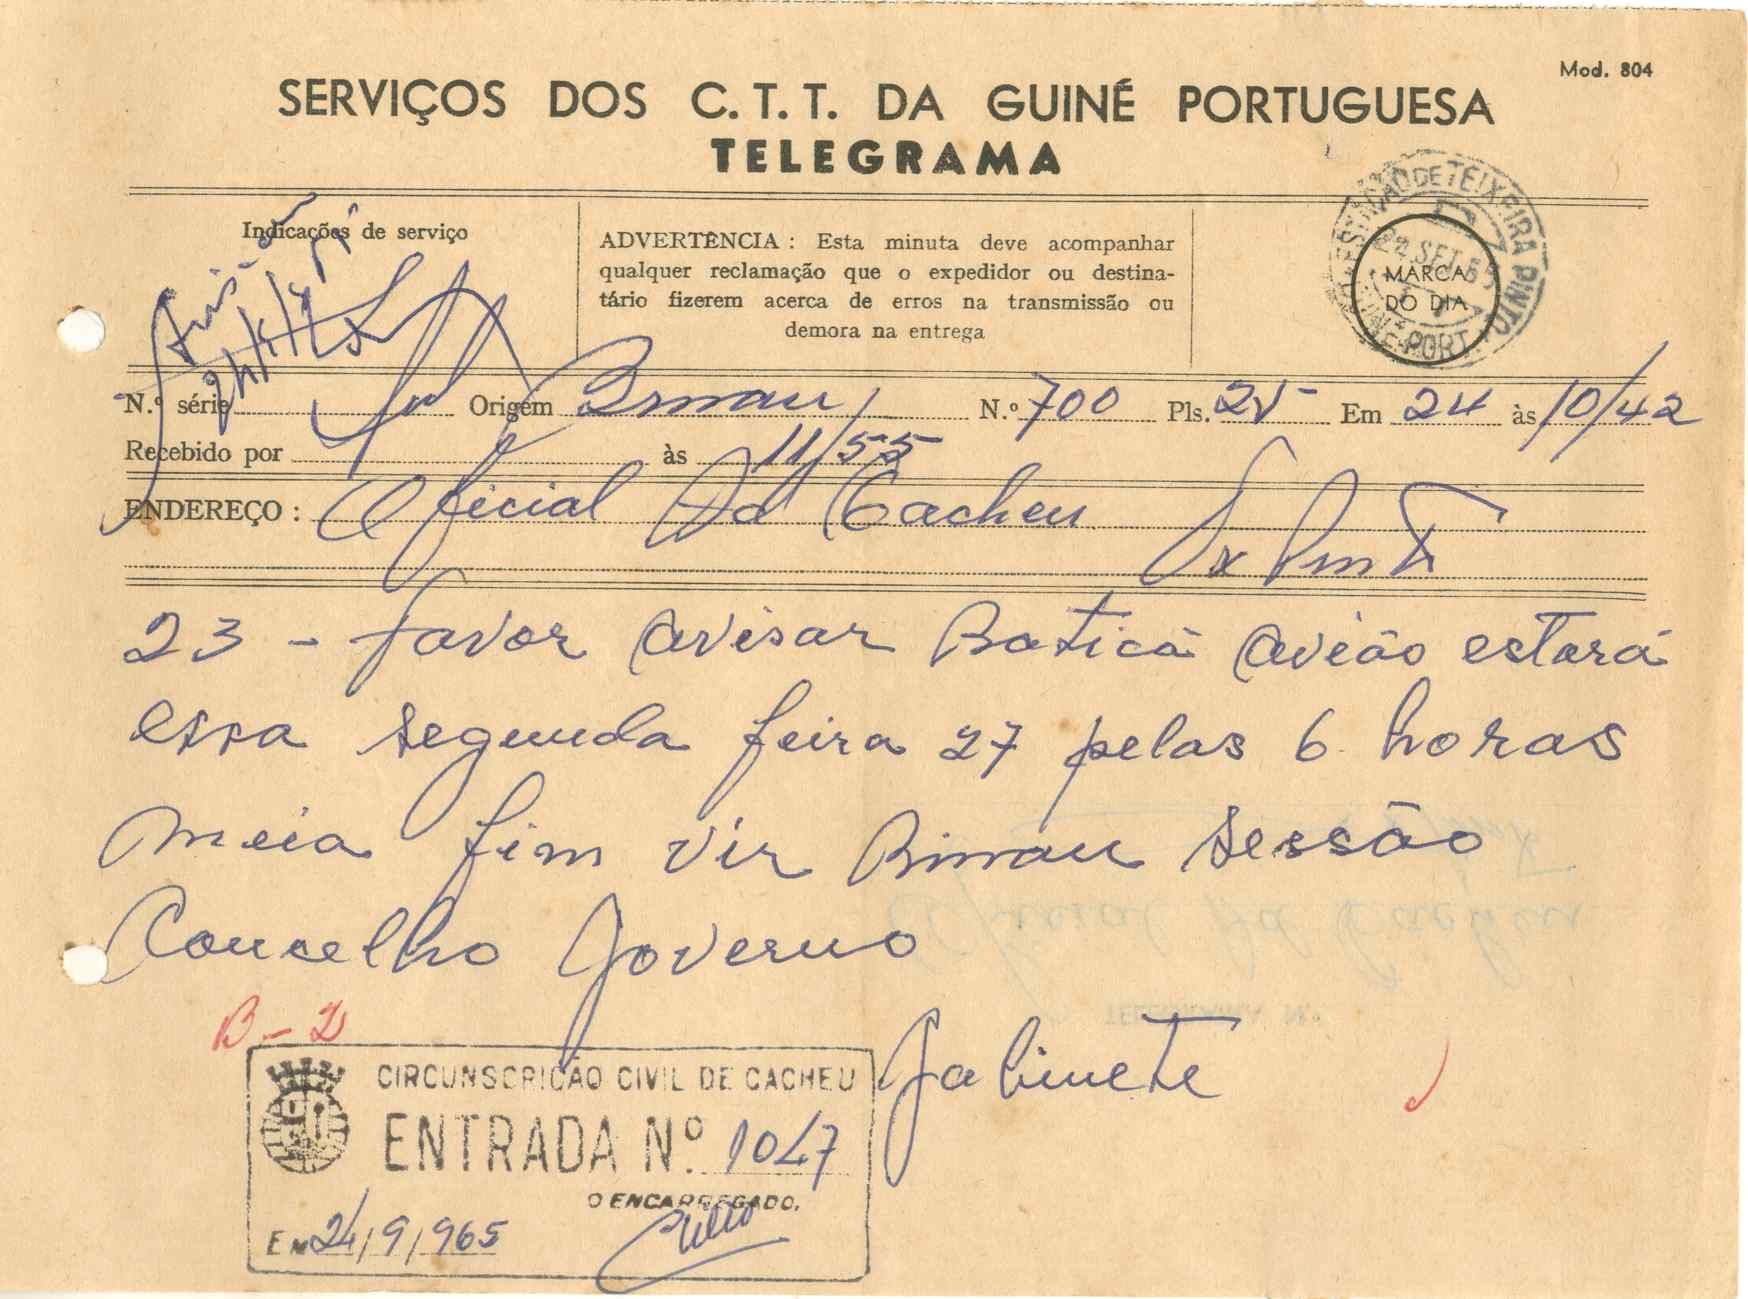 Mod. 804
SERVIÇOS DOS C.T.T. DA GUINÉ PORTUGUESA
TELEGRAMA
Indicações de serviço
ADVERTÊNCIA : Esta minuta deve acompanhar
qualquer reclamação que o expedidor ou destina-
tário fizerem acerca de erros na transmissão ou
demora na entrega
ESTAÇÃO DE TEIXEIRA PINTO
24 SET. 65
GUINÉ PORT.
MARCA
DO DIA
N.º série Origem Bissau N.º 700 Pls. 25 Em 24 às 10/42
Recebido por às 11/55
ENDEREÇO : Oficial Ad Cacheu
23 - favor avisar Baticã avião estará
essa segunda feira 27 pelas 6 horas
meia fim vir Bissau sessão
Concelho Governo
Gabinete
B-2
CIRCUNSCRIÇÃO CIVIL DE CACHEU
ENTRADA Nº 1047
O ENCARREGADO,
EM 24/9/965
TELEGRAMA N.º